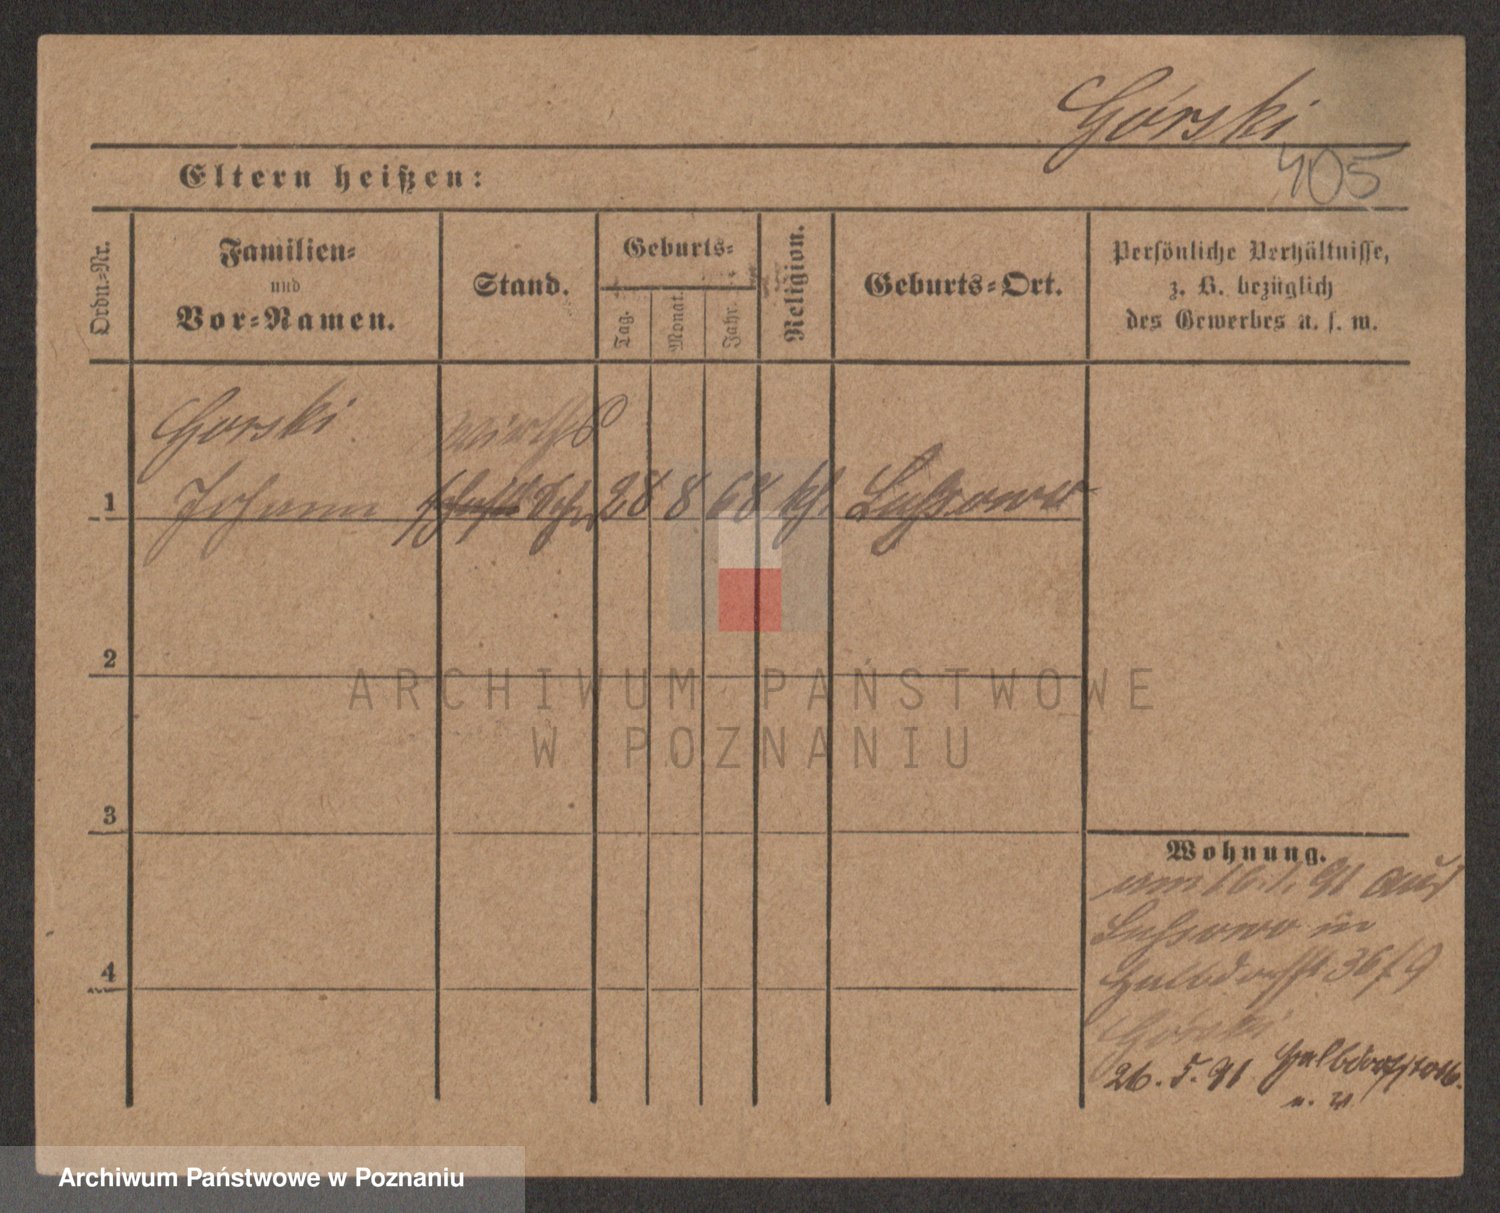 Górski
405
Eltern heißen:
Ordn.-Nr.
Familien-
und
Vor-Namen.
Stand.
Geburts-
Tag.
Monat.
Jahr.
Religion.
Geburts-Ort.
Persönliche Verhältnisse,
z. B. bezüglich
des Gewerbes u. s. w.
Gorski
Wirths
1
Johann
28 8 68 kth Lussowo
2
3
4
Wohnung.
am 16. 1. 91 aus
Lussowo in
Halbdorfst 36/9
Górski
26. 5. 91 Halbdorfstr
ARCHIWUM PAŃSTWOWE
W POZNANIU
Archiwum Państwowe w Poznaniu